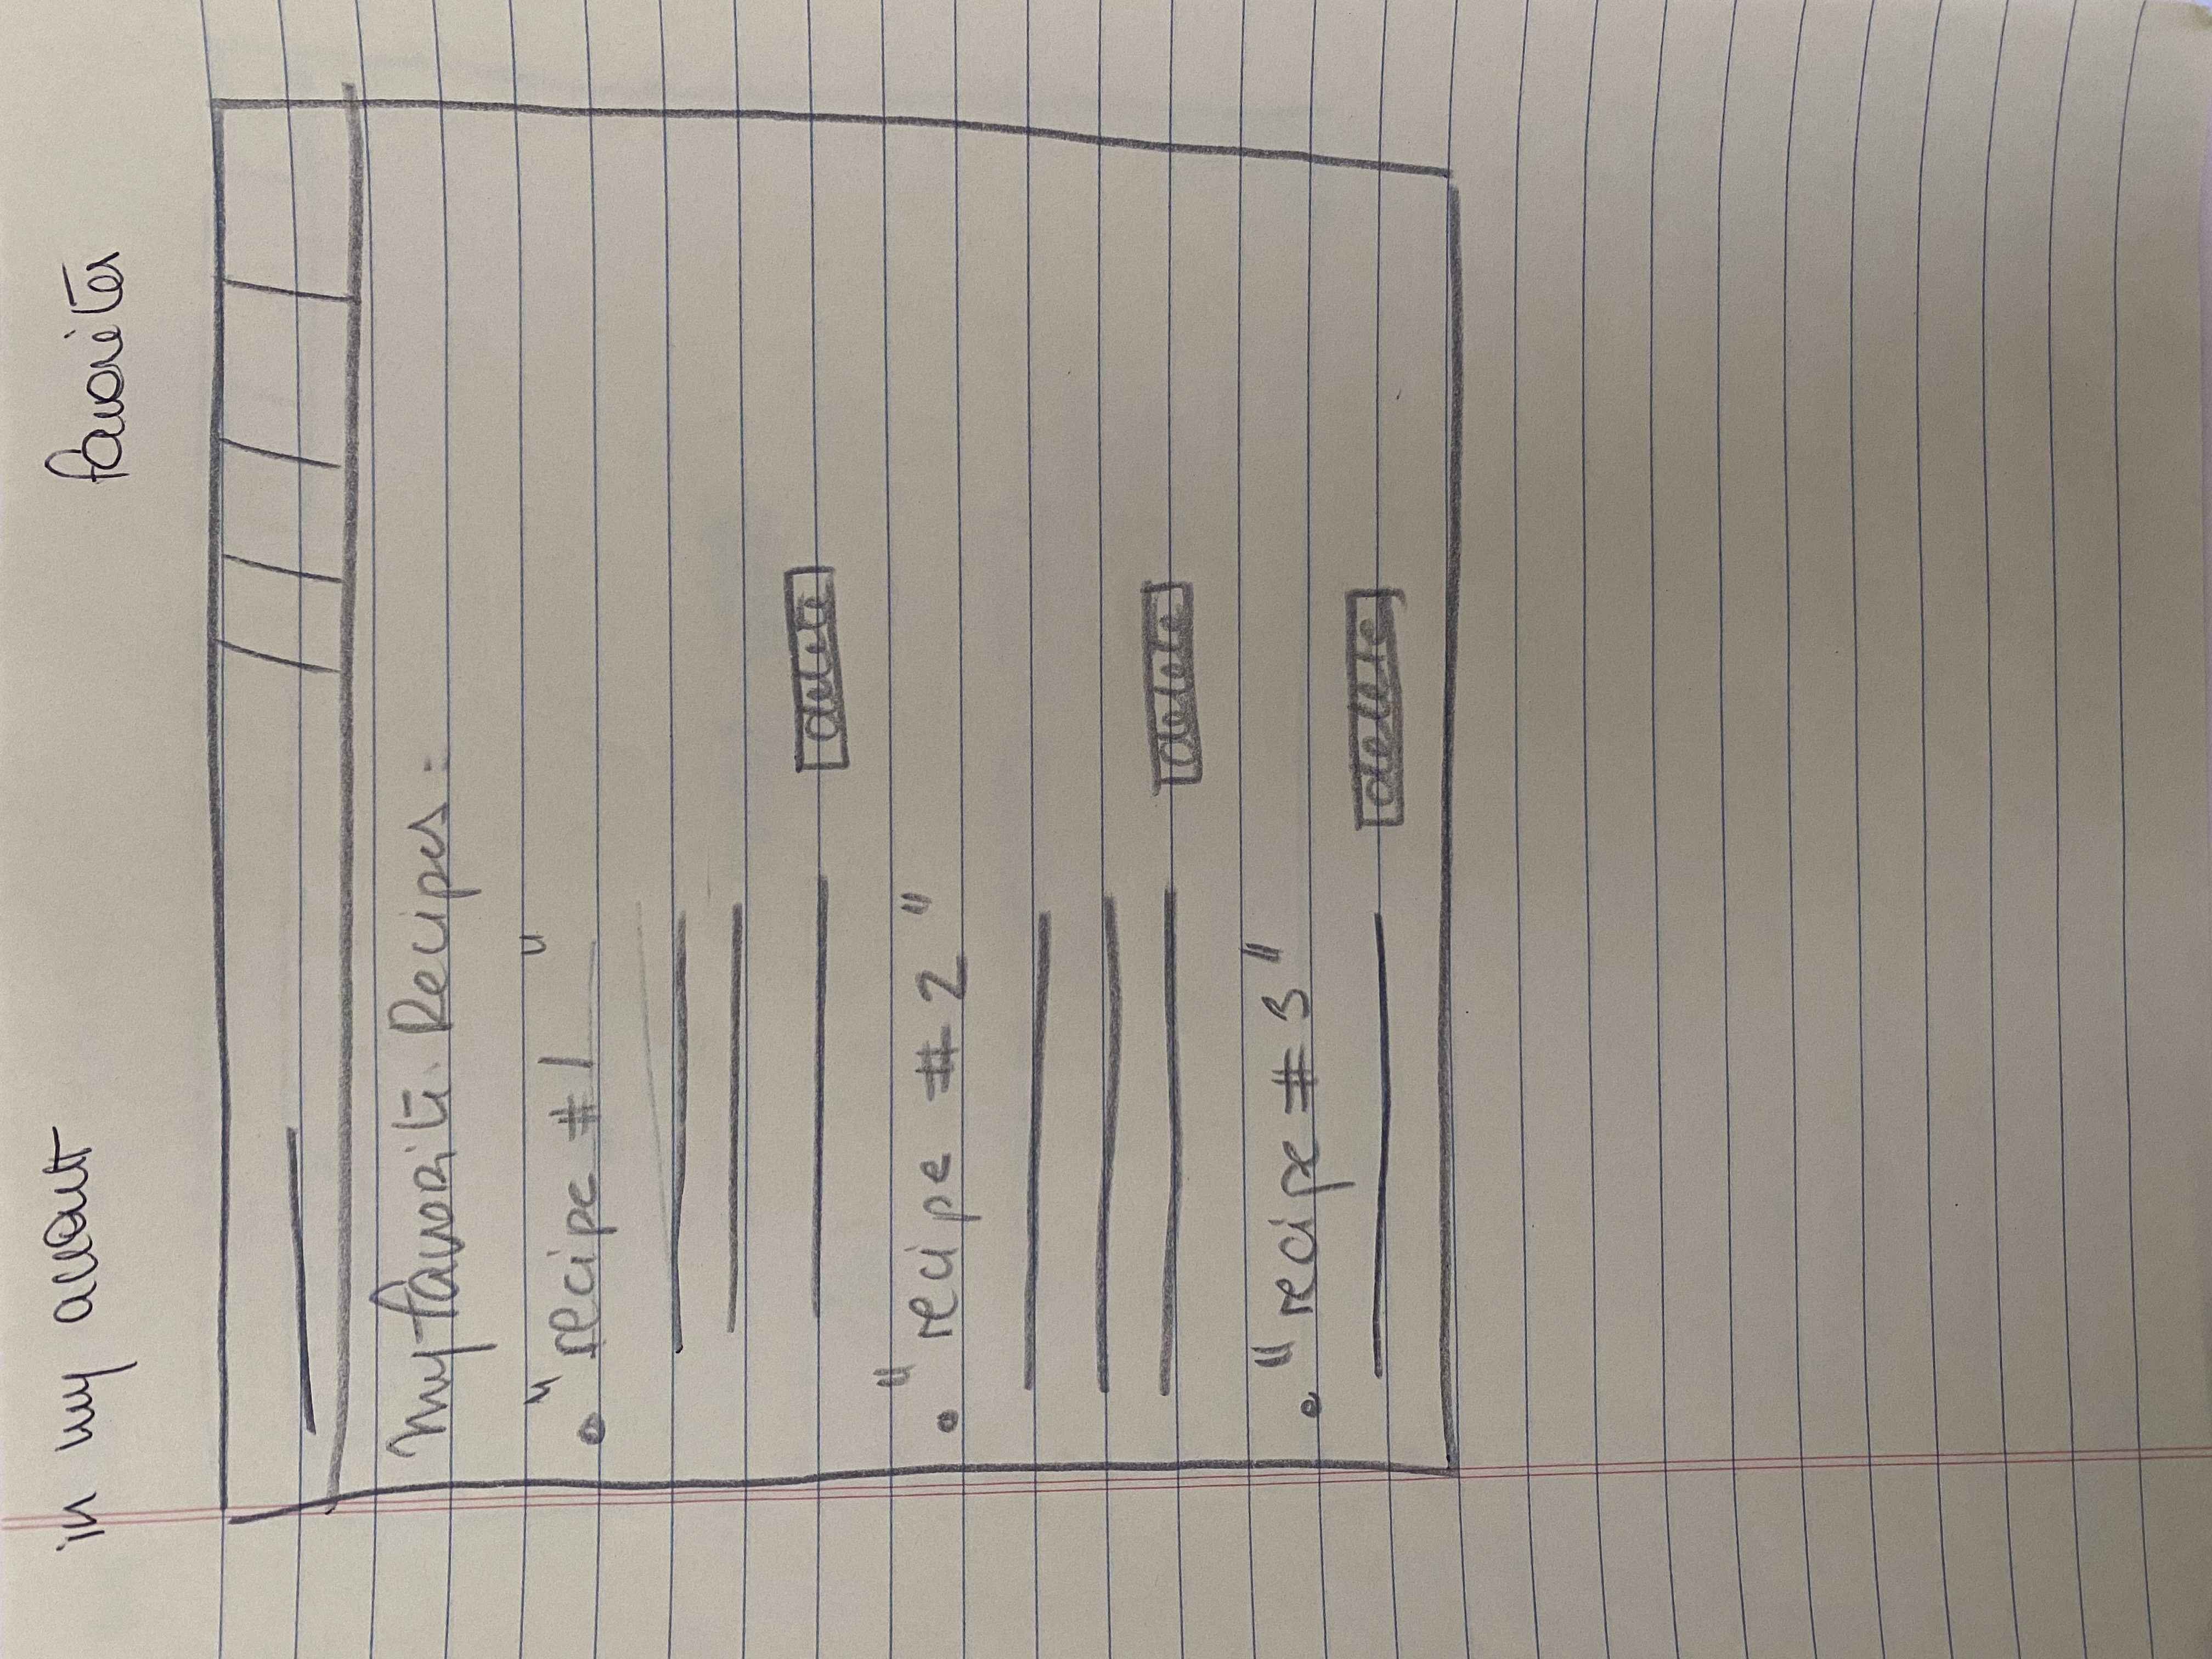 in my account favorites
My favorite Recipes:
• "recipe #1"
delete
• "recipe #2"
delete
• "recipe #3"
delete